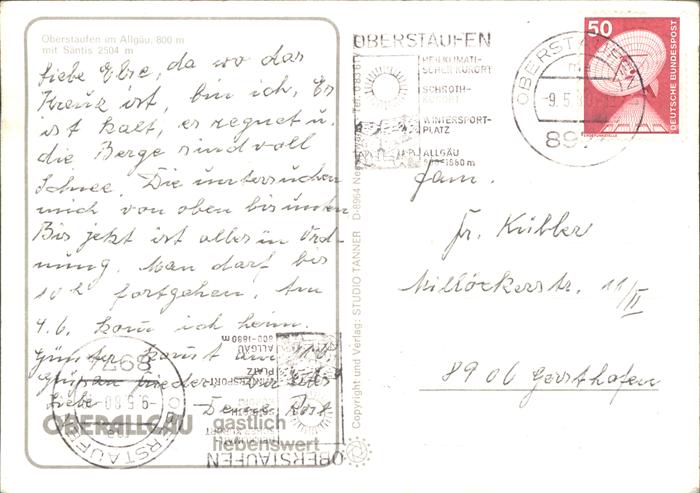 Oberstaufen im Allgäu, 800 m
mit Säntis 2504 m
Liebe Else, da wo das
Kreuz ist, bin ich. Es
ist kalt, es regnet u.
die Berge sind voll
Schnee. Die untersuchen
mich von oben bis unten
Bis jetzt ist alles in Ord-
nung. Man darf bis
10 h fortgehen. Am
4.6. komm ich heim.
Günter kommt am
wieder
Liebe
OBERALLGÄU gastlich
liebenswert
Copyright und Verlag: STUDIO TANNER D-8964
OBERSTAUFEN
HEILKLIMATI-
SCHER KURORT
SCHROTH-
KURORT
WINTERSPORT-
PLATZ
ALLGÄU
800-1880 m
OBERSTAUFEN
-9.5.80
897
50
DEUTSCHE BUNDESPOST
Fam.
Fr. Kübler
Millöckerstr. 11/II
8906 Gersthofen
897
-9.5.80
OBERSTAUFEN
800-1880 m
ALLGÄU
PLATZ
WINTERSPORT-
OBERSTAUFEN